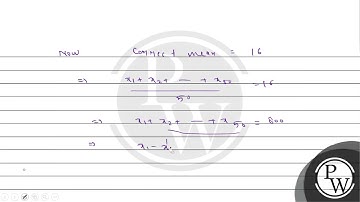 Now Correct mean = 16
⇒ x₁ + x₂ + — + x₅₀ / 50 = 16
⇒ x₁ + x₂ + — + x₅₀ = 800
⇒ x₁ - x₁'
P
W
P
W